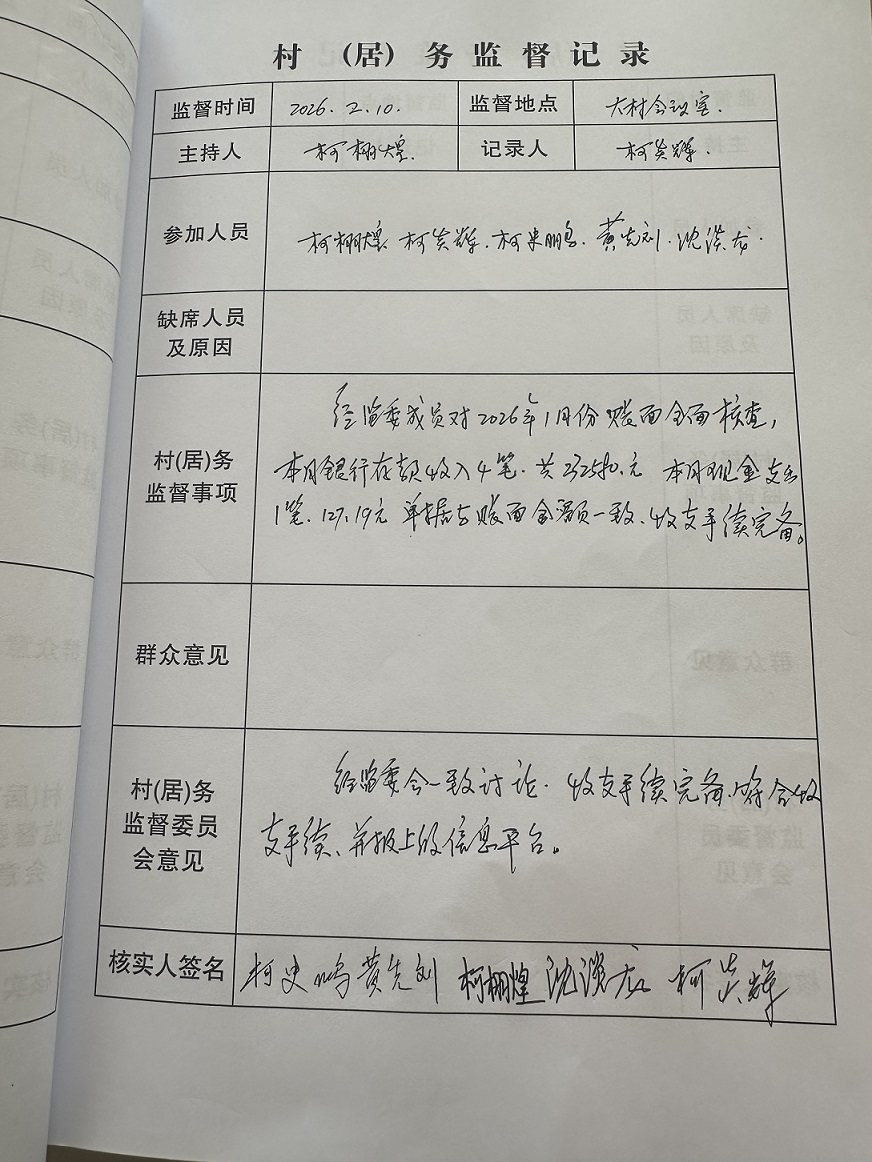 村（居）务监督记录
监督时间 2026.2.10. 监督地点 大村会议室.
主持人 柯栩煌. 记录人 柯炎辉.
参加人员 柯栩煌. 柯炎辉. 柯史鹏. 黄先刘. 沈洪龙.
缺席人员
及原因
经监委成员对2026年1月份账面全面核查,
村(居)务
监督事项
本月银行存款收入4笔. 共232580.元 本月现金支出
1笔. 127.19元 单据与账面金额一致、收支手续完备。
群众意见
村(居)务
监督委员
会意见
经监委会一致讨论. 收支手续完备.符合收
支手续、并报上级信息平台。
核实人签名 柯史鸣 黄先刘 柯栩煌 柯炎辉